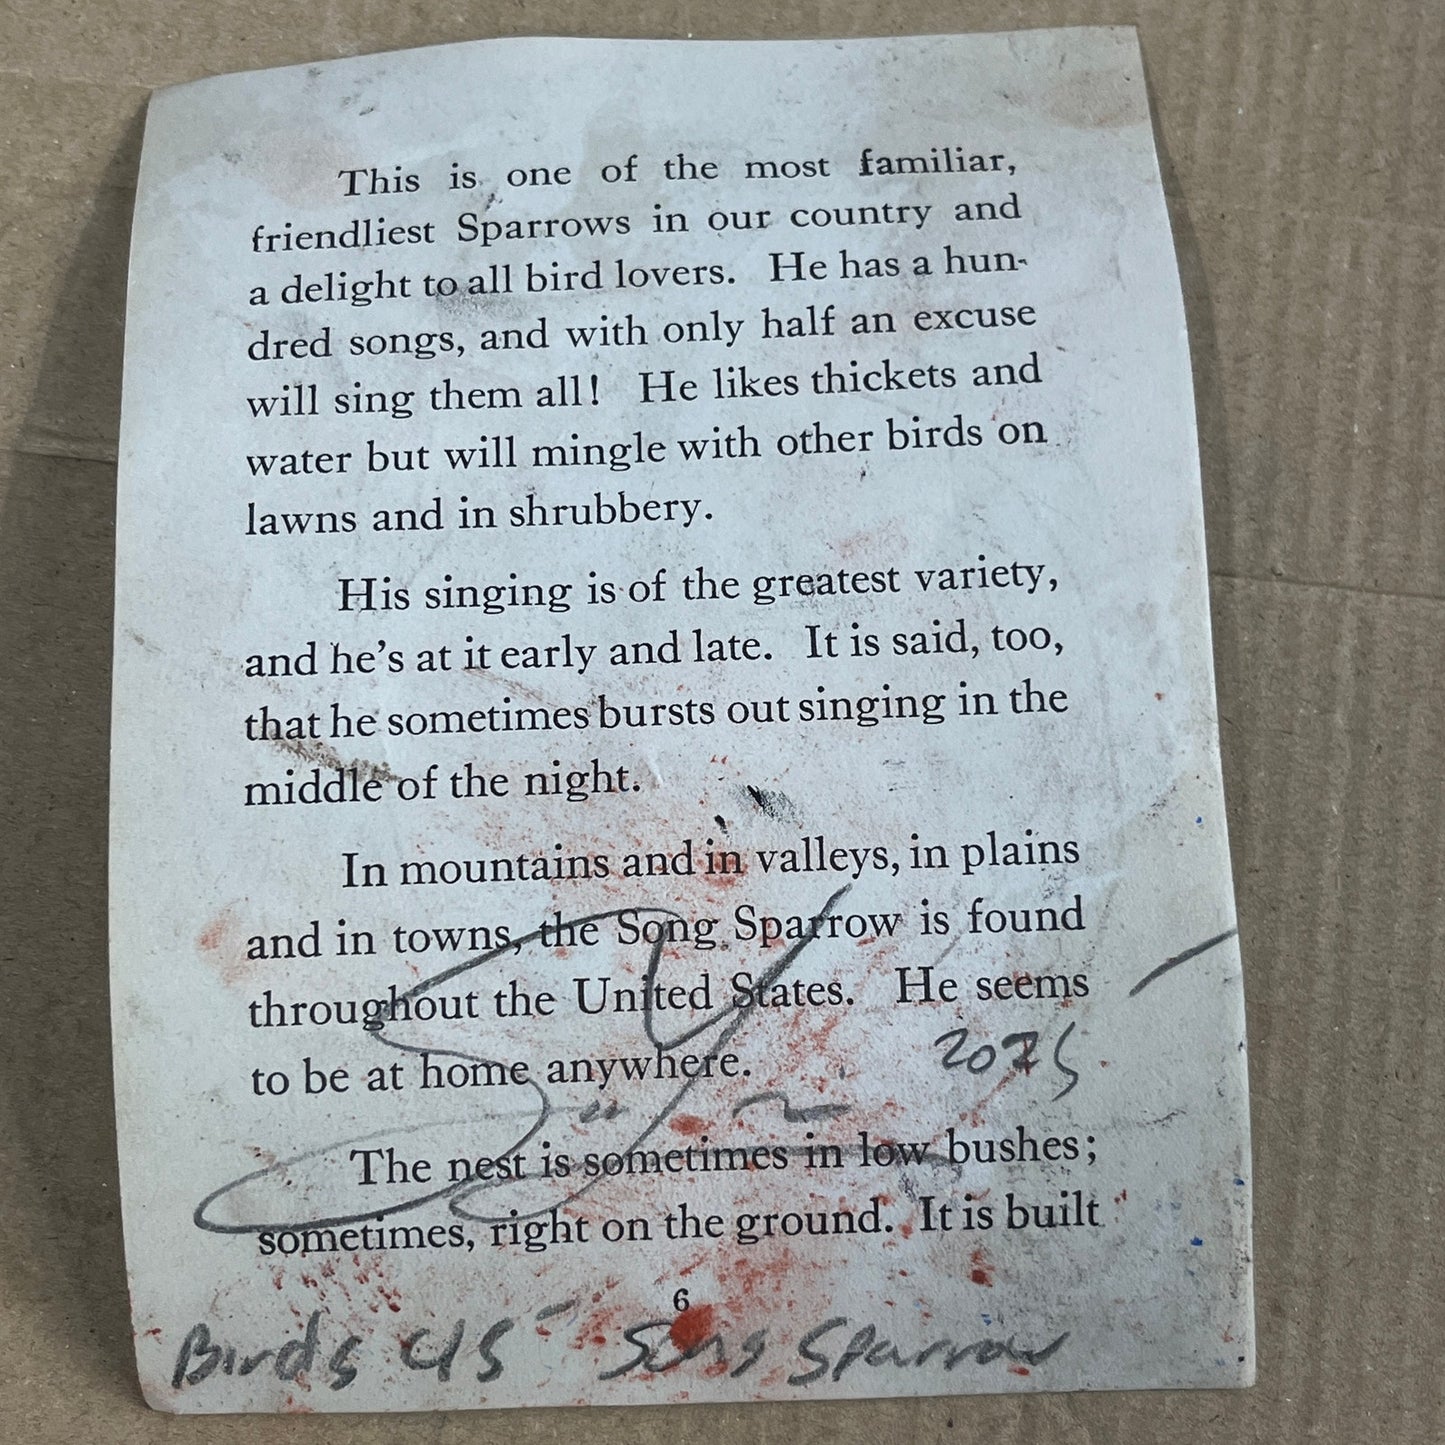 This is one of the most familiar,
friendliest Sparrows in our country and
a delight to all bird lovers. He has a hun-
dred songs, and with only half an excuse
will sing them all! He likes thickets and
water but will mingle with other birds on
lawns and in shrubbery.
His singing is of the greatest variety,
and he's at it early and late. It is said, too,
that he sometimes bursts out singing in the
middle of the night.
In mountains and in valleys, in plains
and in towns, the Song Sparrow is found
throughout the United States. He seems
to be at home anywhere.
2025
The nest is sometimes in low bushes;
sometimes, right on the ground. It is built
6
Birds 45 - Song Sparrow